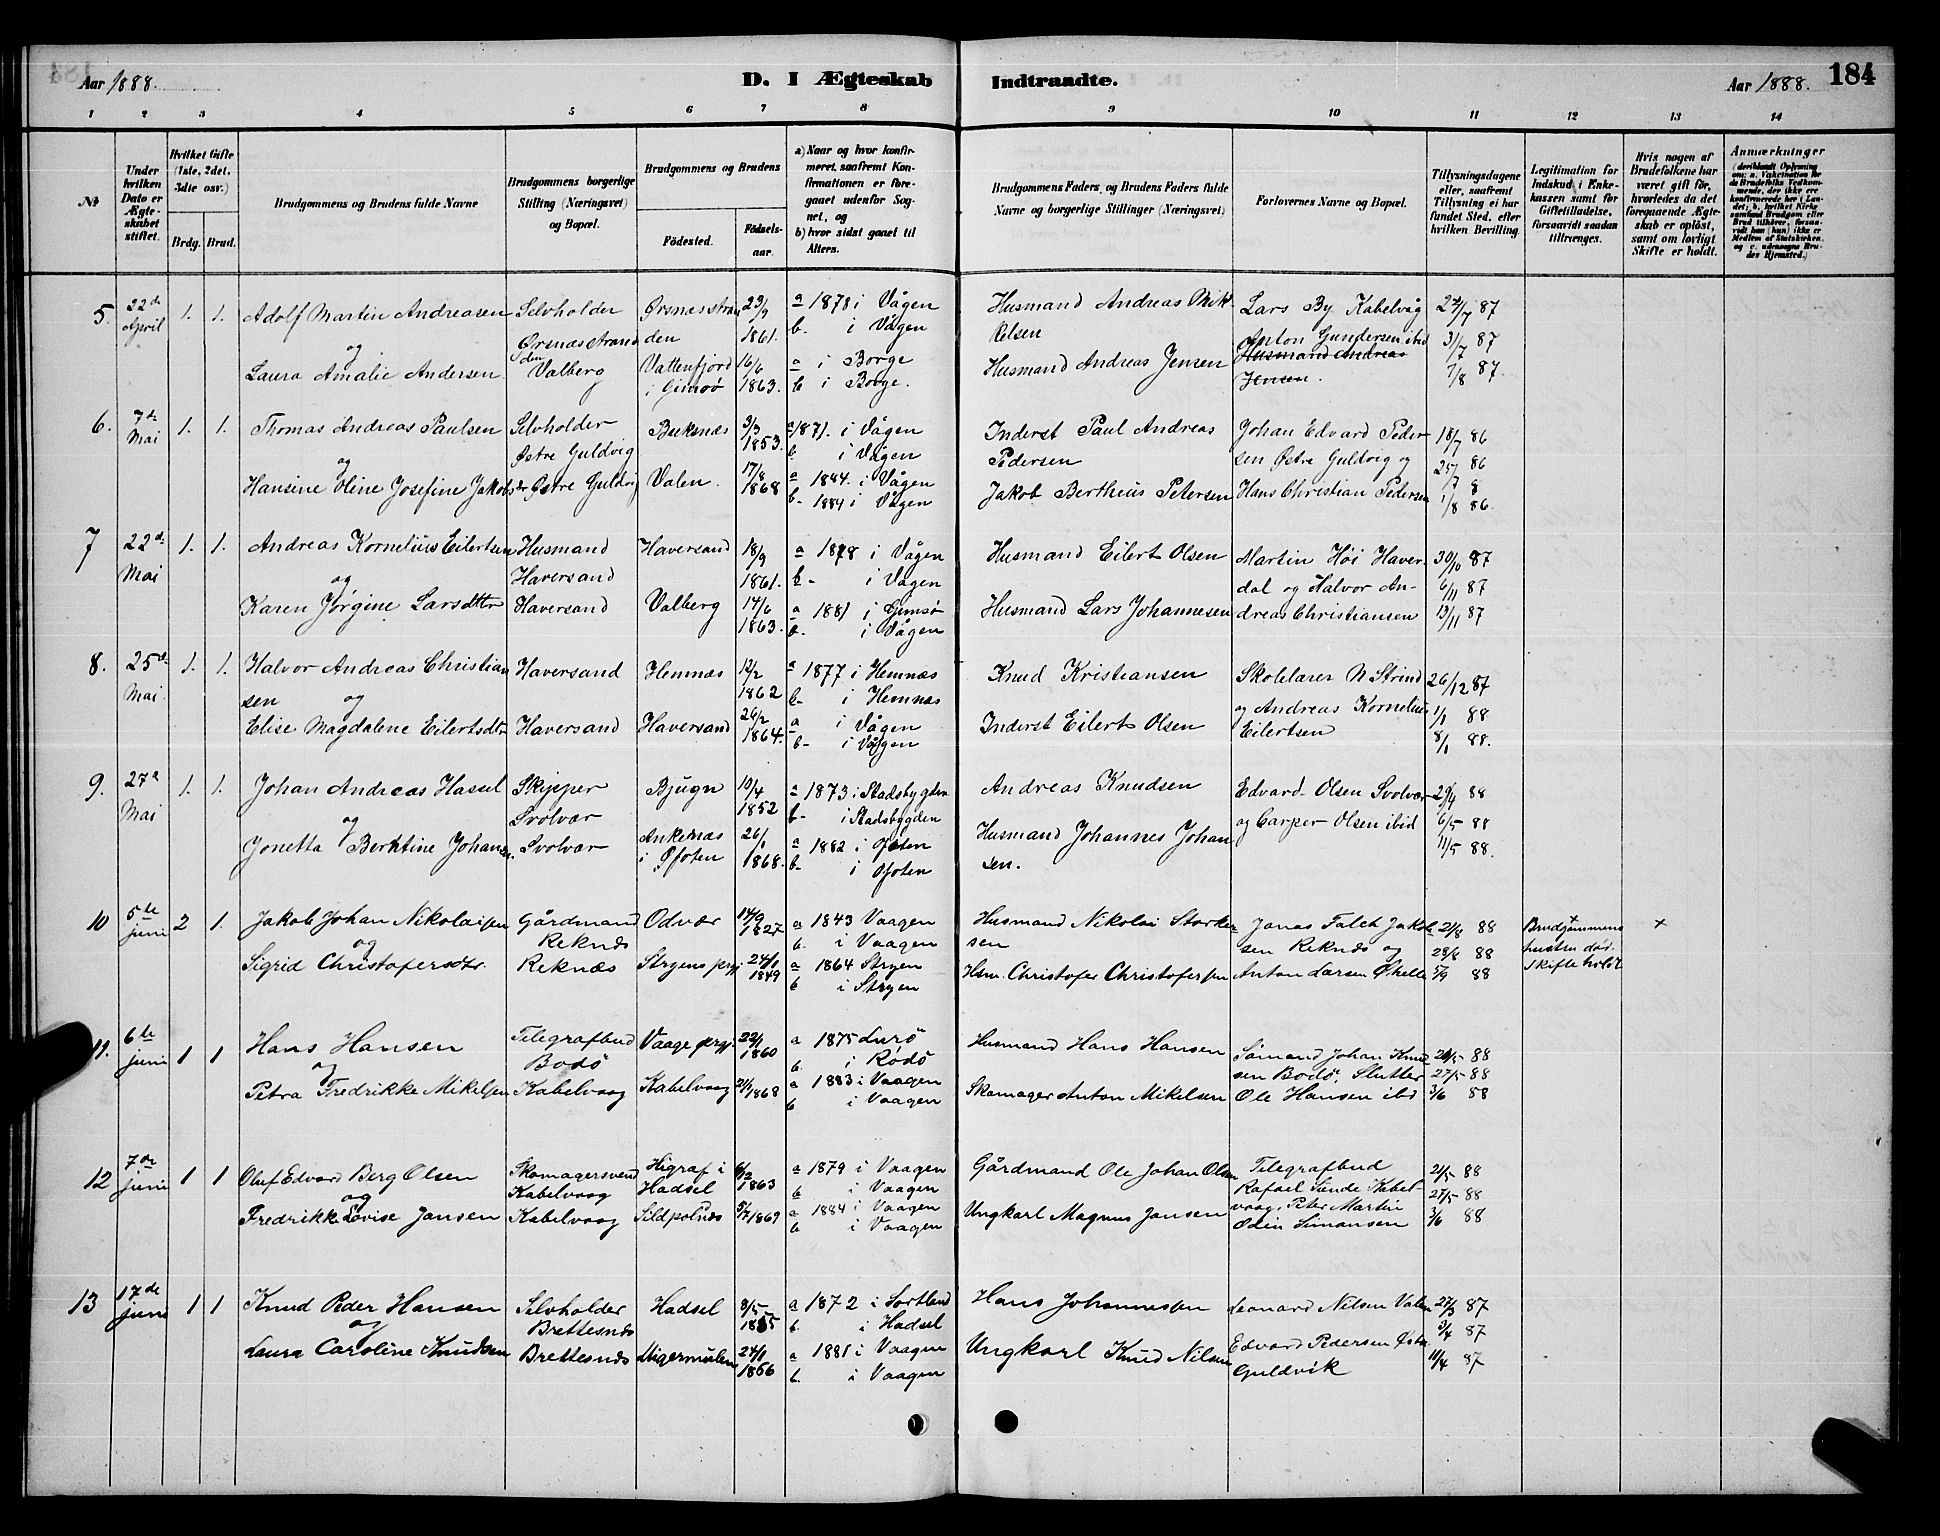 Aar 1888.
D. I Ægteskab Indtraadte.
Aar 1888. 184
1 2 3 4 5 6 7 8 9 10 11 12 13 14
№
Under hvilken Dato er Ægteskabet stiftet.
Hvilket Gifte (1ste, 2det, 3die osv.)
Brdg. Brud.
Brudgommens og Brudens fulde Navne
Brudgommens borgerlige Stilling (Næringsvei) og Bopæl.
Brudgommens og Brudens
Fødested. Fødselsaar.
a) Naar og hvor konfirmeret, saafremt Konfirmationen er foregaaet udenfor Sognet, og
b) hvor sidst gaaet til Alters.
Brudgommens Faders, og Brudens Faders fulde Navne og borgerlige Stillinger (Næringsvei)
Forlovernes Navne og Bopæl.
Tillysningsdagene eller, saafremt Tillysning ei har fundet Sted, efter hvilken Bevilling.
Legitimation for Indskud i Enkekassen samt for Giftetilladelse, forsaavidt saadan tiltrænges.
Hvis nogen af Brudefolkene har været gift før, hvorledes da det foregaaende Ægteskab er opløst, samt om lovligt Skifte er holdt.
Anmærkninger
5. 22de April 1. 1. Adolf Martin Andreasen Selvholder Ørsnæsstranden Ørsnæsstranden 23/9 1861. a 1878 i Vågen b. i Vågen Husmand Andreas Mikkelsen Lars By Kabelvåg 24/7 87
og Anton Gundersen ibid 31/7 87
Laura Amalie Andersen Valberg Vattenfjord i Gimsø 16/6 1863. a i Borge b i Borge. Husmand Andreas Jensen Husmand Andreas Jensen. 7/8 87.
6. 7de Mai 1. 1. Thomas Andreas Paulsen Selvholder Østre Guldvig Buksnæs 9/3 1853. a 1871. i Vågen b. i Vågen Inderst Paul Andreas Pedersen Johan Edvard Pedersen Østre Guldvig og 18/7 86
og 25/7 86
Hansine Oline Josefine Jakobsdr Østre Guldvig Valen. 17/8 1868 a 1884. i Vågen b- 1884 i Vågen Jakob Berthius Petersen Hans Christian Pedersen 1/8 86.
7 22de Mai 1. 1. Andreas Kornelius Eilertsen Husmand Haversand Haversand 18/9 1861. a 1878 i Vågen b- i Vågen Husmand Eilert Olsen Martin Høi Haverdal og Halvor Andreas Christiansen 30/10 87
og 6/11 87
Karen Jørgine Larsdttr Haversand Valberg 14/6 1863. a 1881 i Gimsø b. i Vågen Husmand Lars Johannesen 13/11 87
8. 25de Mai. 1. 1. Halvor Andreas Christiansen Haversand Hemnæs 12/2 1862 a 1877 i Hemnæs b- i Hemnæs Knud Kristiansen Skolelærer N Strind og Andreas Kornelius Eilertsen 26/12 87
og 1/1 88
Elise Magdalene Eilertsdtr Haversand Haversand 26/2 1864. a i Vågen b- i Vågen Inderst Eilert Olsen 8/1 88.
9. 27de Mai 1. 1. Johan Andreas Hassel Skipper Svolvær Bjugn 13/4 1852 a 1873 i Stadsbygden b- i Stadsbygden Andreas Knudsen Edvard Olsen Svolvær og Casper Olsen ibid 29/4 88
og 6/5 88
Jonetta Berntine Johansen. Svolvær Ankenæs i Ofoten 26/1 1868. a 1882 i Ofoten b- i Ofoten Husmand Johannes Johansen. 11/5 88.
10 5te juni 2 1. Jakob Johan Nikolaisen Gårdmand Reknæs Odvær 14/9 1827 a 1843 Vaagen b. i Vaagen Husmand Nikolai Størkersen Jonas Falch Jakobsen Reknæs og 21/8 88 Brudgommens hustru død. Skifte holdt x
og 28/8 88
Sigrid Christofersdtr. Reknæs Stryens prgj 24/1 1849 a 1864 Stryen b i Stryen Hsm. Christofer Christofersen Anton Larsen Ørhelle 5/9 88
11. 6te juni 1 1 Hans Hansen Telegrafbud Bodø Vaage prgj. 22/1 1860 a 1875 Lurø b. i Rødø Husmand Hans Hansen Sømand Johan Knudsen Bodø, Slutter 20/5 88
og 27/5 88
Petra Fredrikke Mikelsen Kabelvaag Kabelvaag 21/9 1868 a 1883 i Vaagen b i Vaagen Skomager Anton Mikelsen Ole Hansen ibd 3/6 88
12 7de juni 1 1 Oluf Edvard Berg Olsen Skomagersvend Kabelvaag Higraf i Hadsel 6/2 1863 a 1879 i Vaagen b i Vaagen Gårdmand Ole Johan Olsen Telegrafbud Rafael Sunde Kabelvaag, Peter Martin 21/5 88
og 27/5 88
Fredrikke Lovise Jansen Kabelvaag Sildpolnæs 9/7 1869 a 1884 i Vaagen b i Vaagen Ungkarl Magnus Jansen Odin Simonsen 3/6 88
13 17de juni 1 1 Knud Peder Hansen Selvholder Brettesnæs Hadsel 8/5 1855 a 1872 i Sortland b. i Hadsel Hans Johannesen Leonard Nilsen Valen 27/3 87
og 3/4 87
Laura Caroline Knudsen Brettesnæs Digermulen 24/1 1866 a 1881 i Vaagen b. i Vaagen Ungkarl Knud Nilsen Edvard Pedersen Østre Guldvik 11/4 87